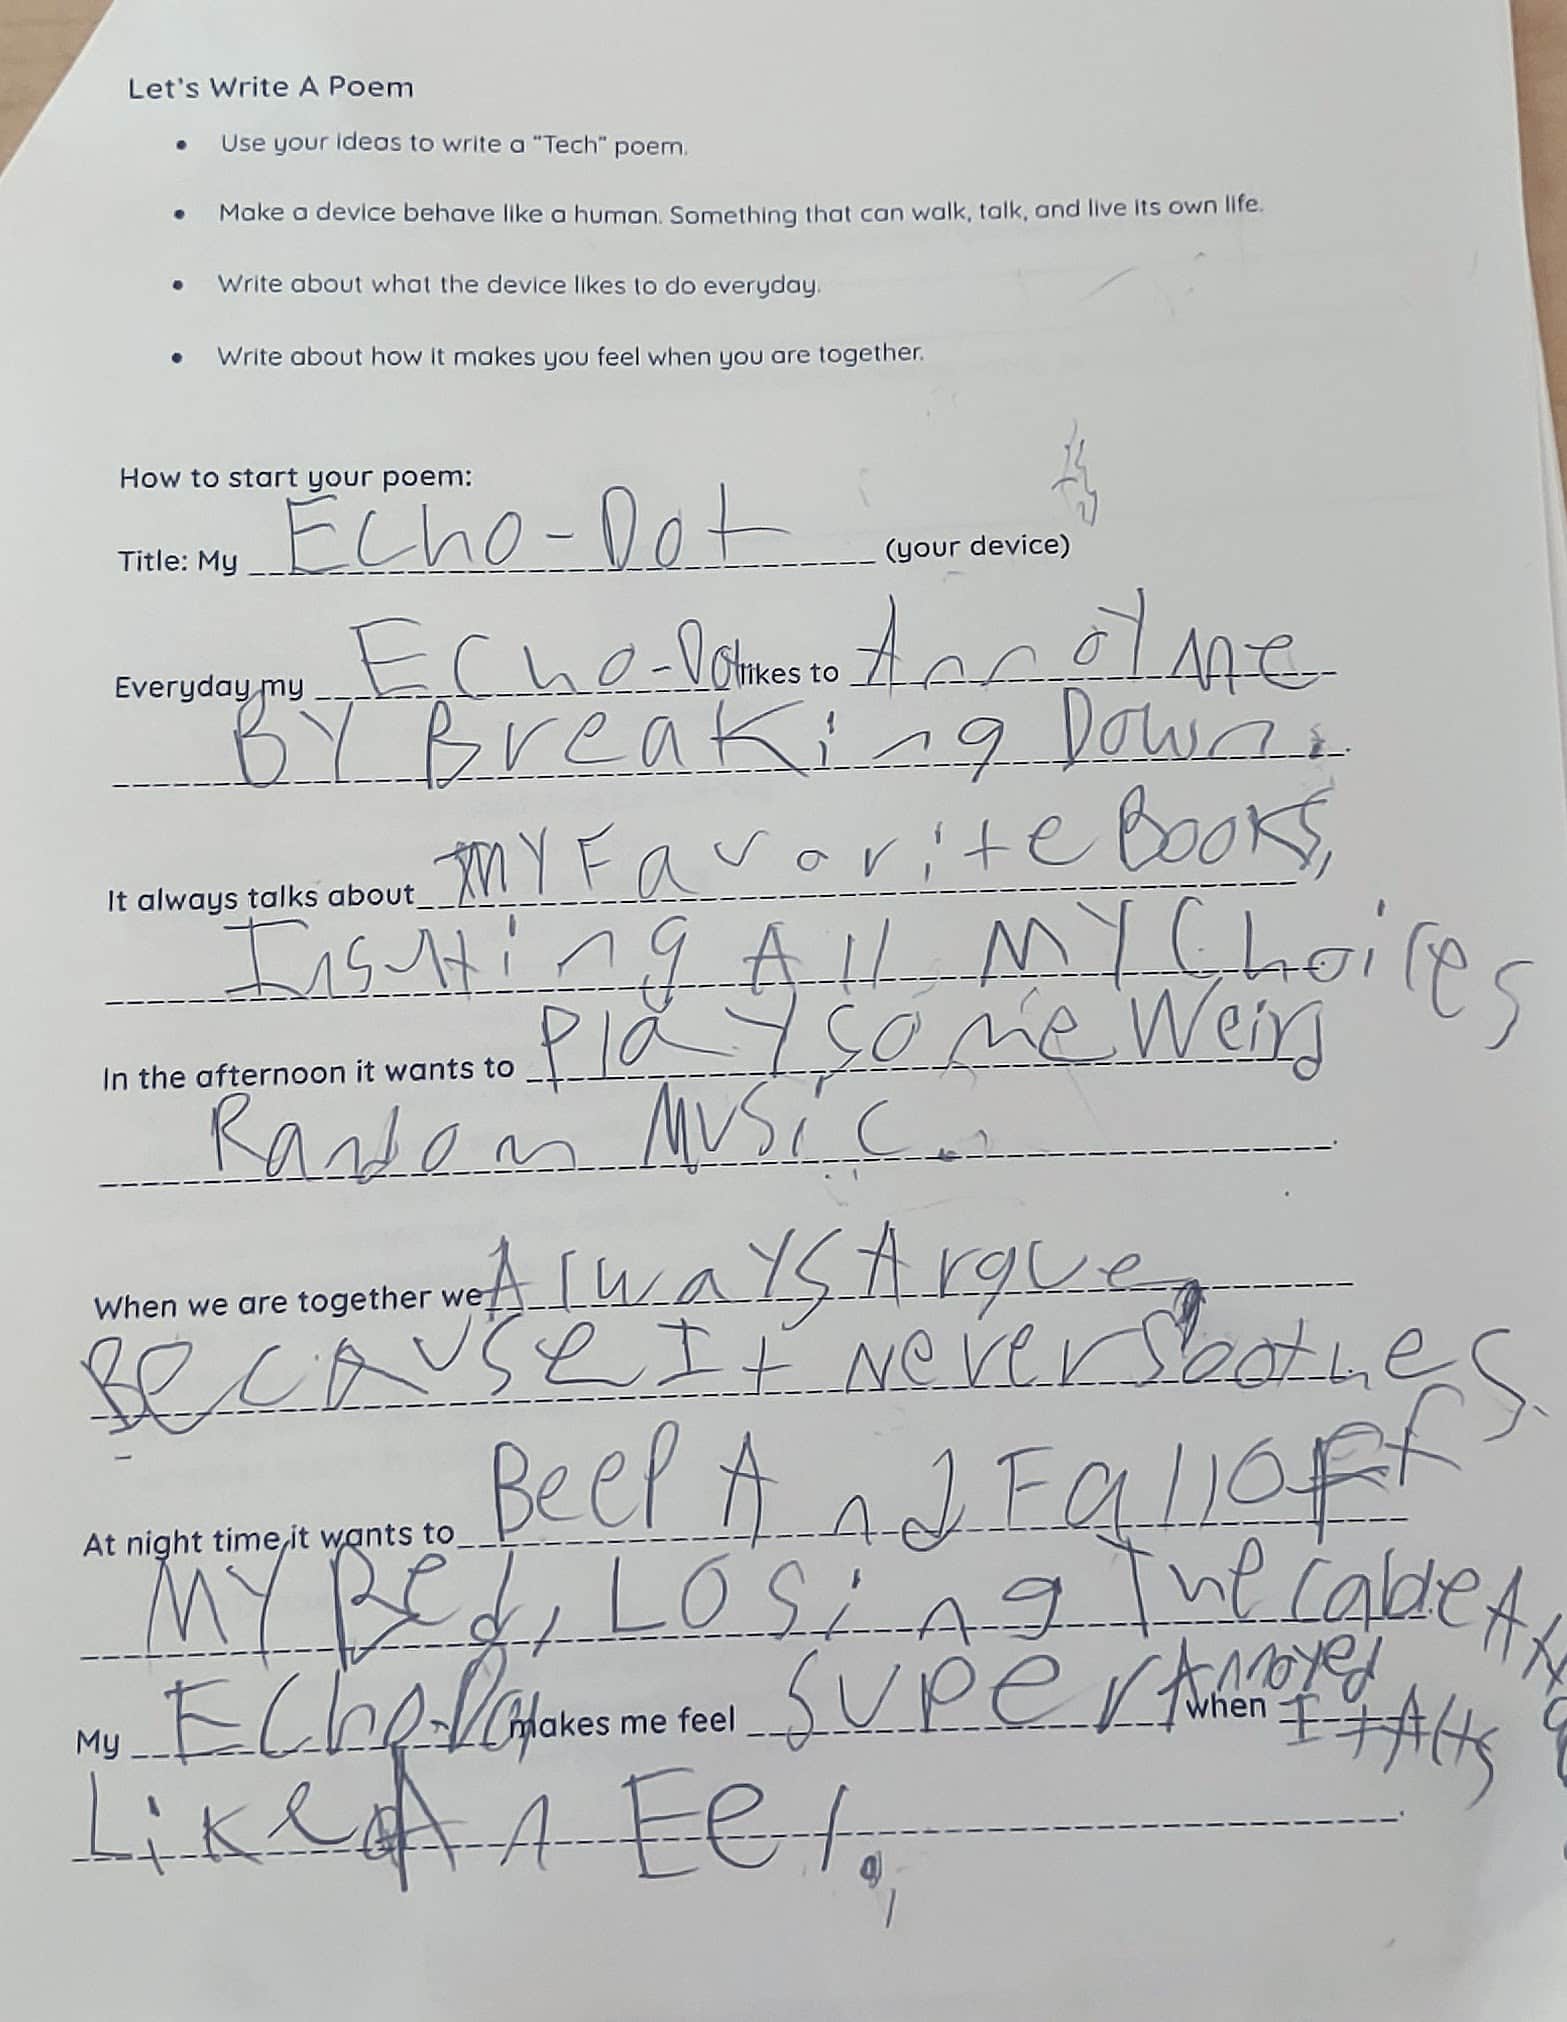 Let's Write A Poem
• Use your ideas to write a "Tech" poem.
• Make a device behave like a human. Something that can walk, talk, and live its own life.
• Write about what the device likes to do everyday.
• Write about how it makes you feel when you are together.
How to start your poem:
Title: My Echo-Dot (your device)
Everyday my Echo-Dot likes to Annoy me
BY Breaking Down.
It always talks about my Favorite Books,
Insulting All MY Choices
In the afternoon it wants to Play some Weird
Random Music.
When we are together we Always Argue,
Because It Never Soothes.
At night time it wants to Beep And Fall OFF
MY Bed, Losing The Cable
My Echo-Dot makes me feel Super Annoyed when It Acts
Like An Eel.